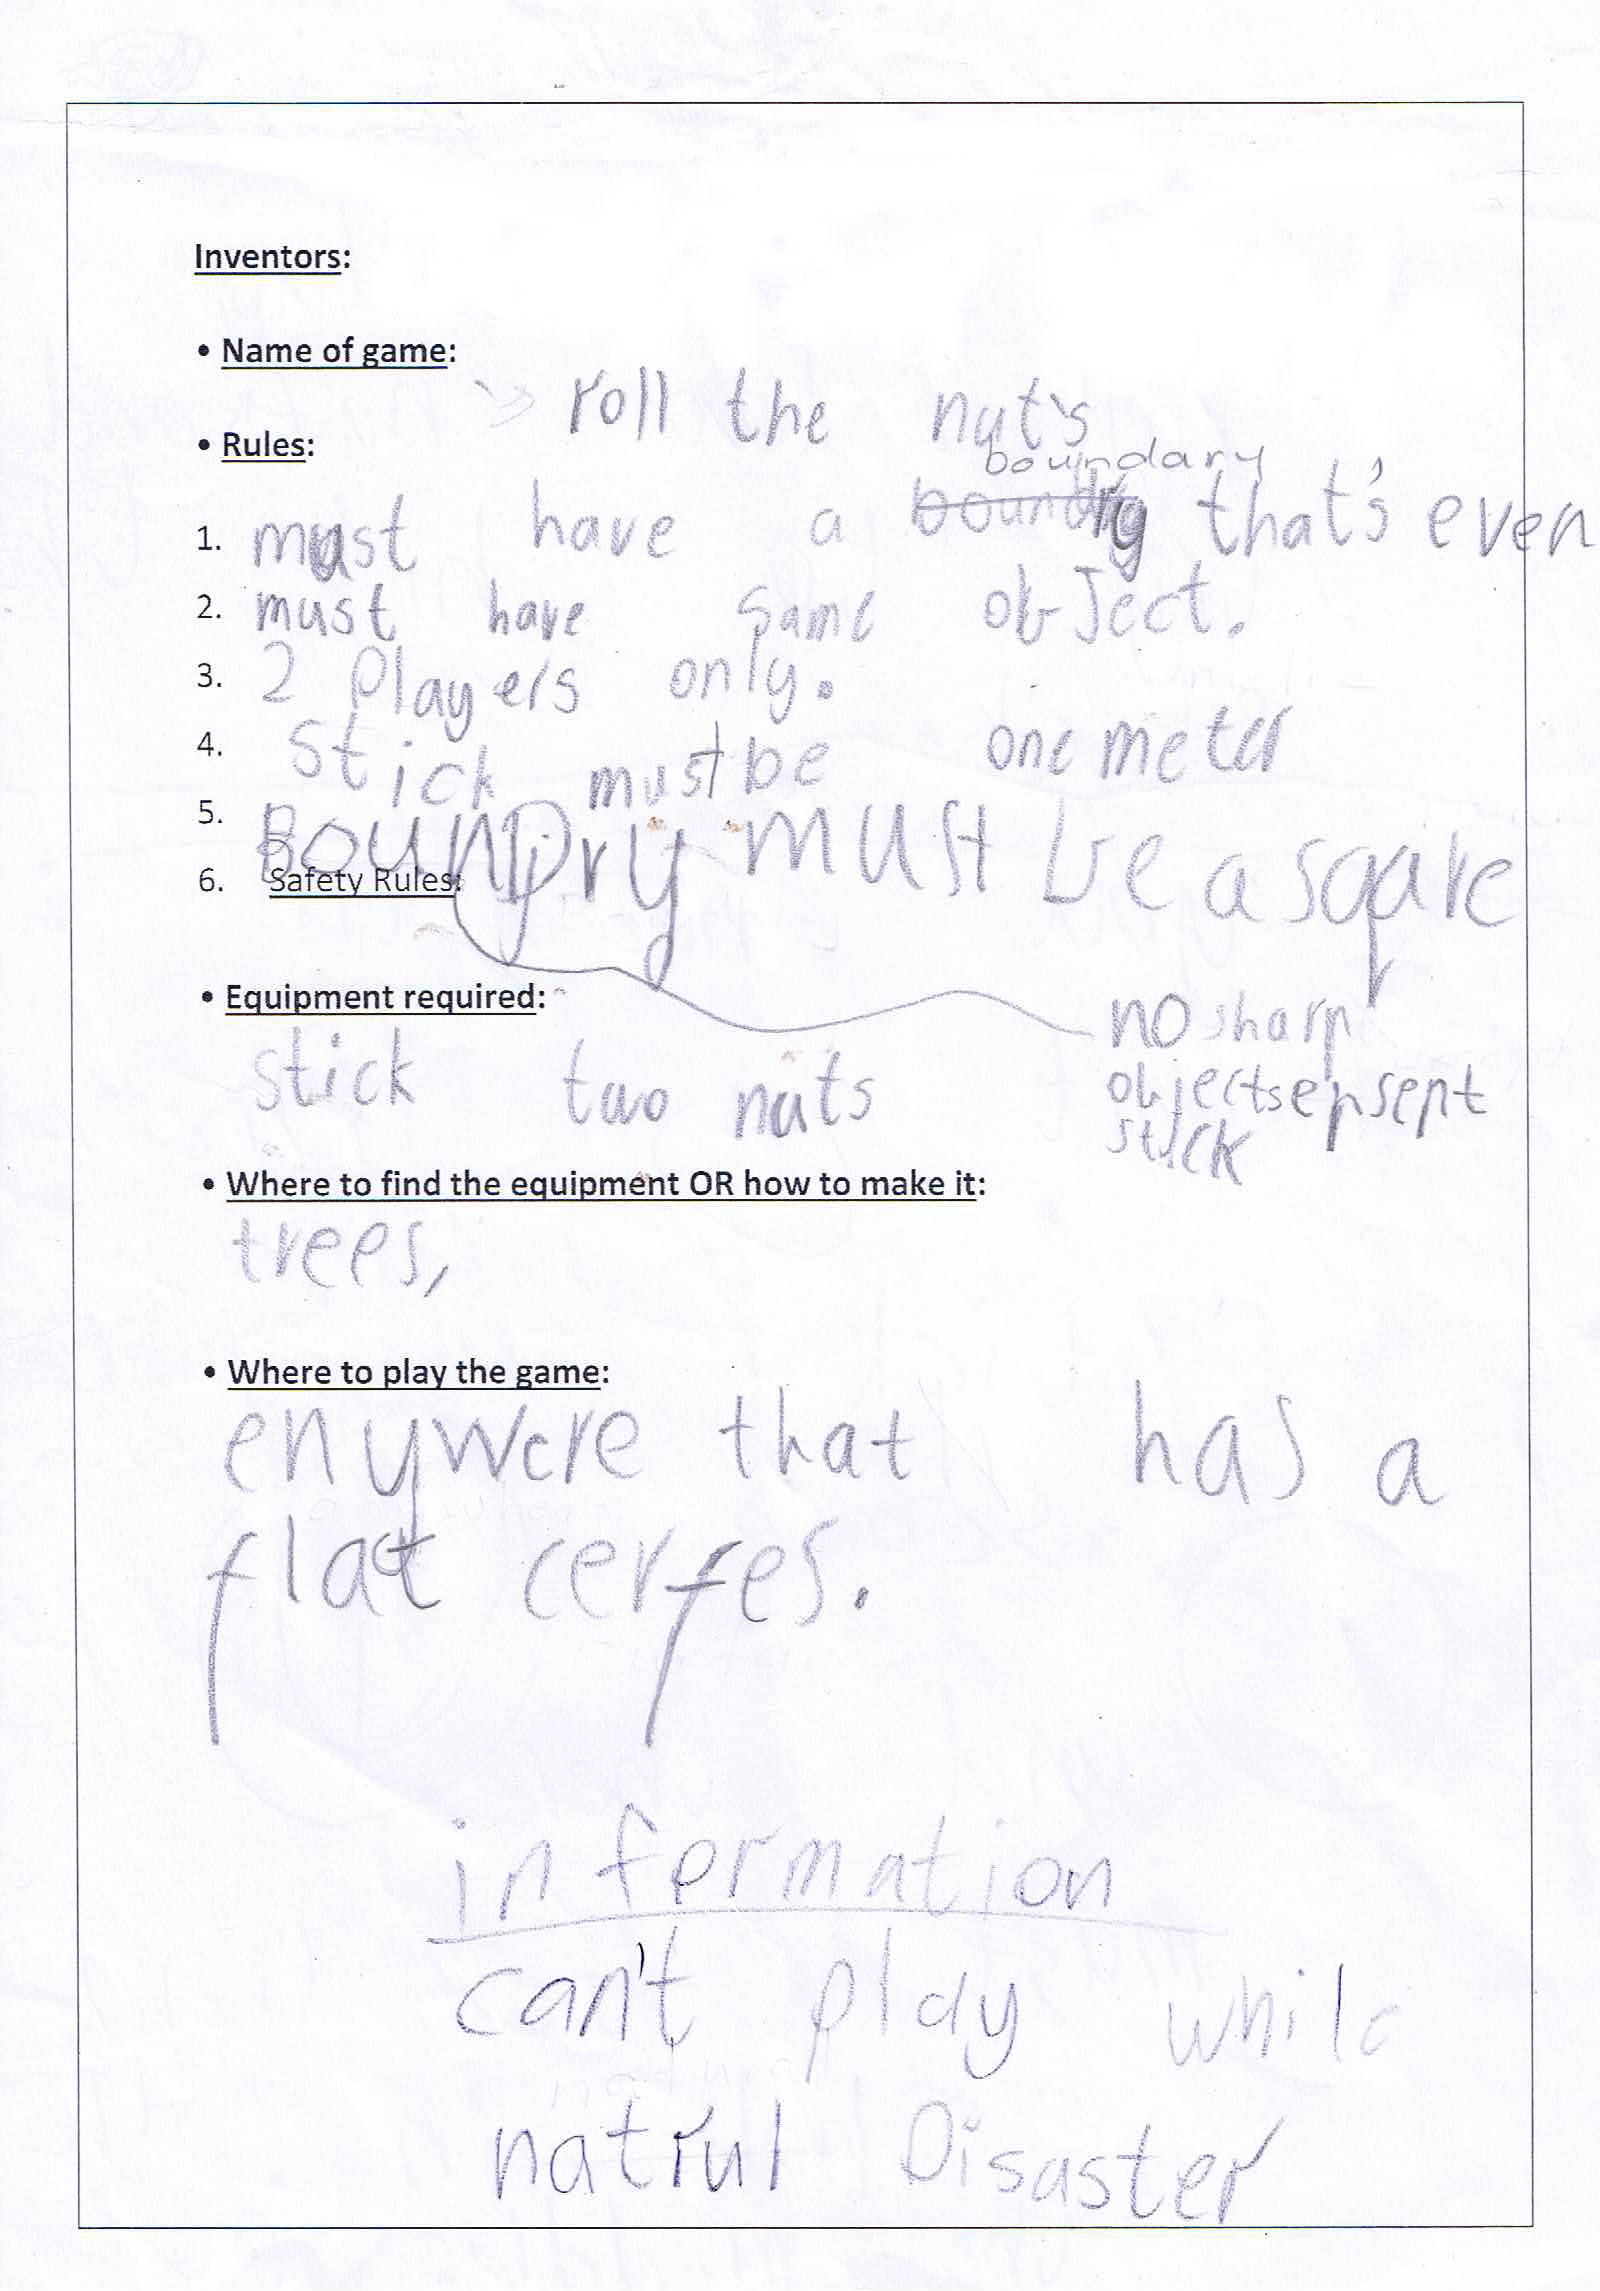 Inventors:
• Name of game:
roll the nut's
• Rules:
boundary
1. must have a boundry that's even
2. must have same object.
3. 2 Players only.
4. Stick must be one meter
5. Boundry must be a sqare
6. Safety Rules:
• Equipment required:
no sharp
objects epsept
stick
stick two nuts
• Where to find the equipment OR how to make it:
trees,
• Where to play the game:
enywere that has a
flat cerfes.
information
can't play while
natrul Disaster